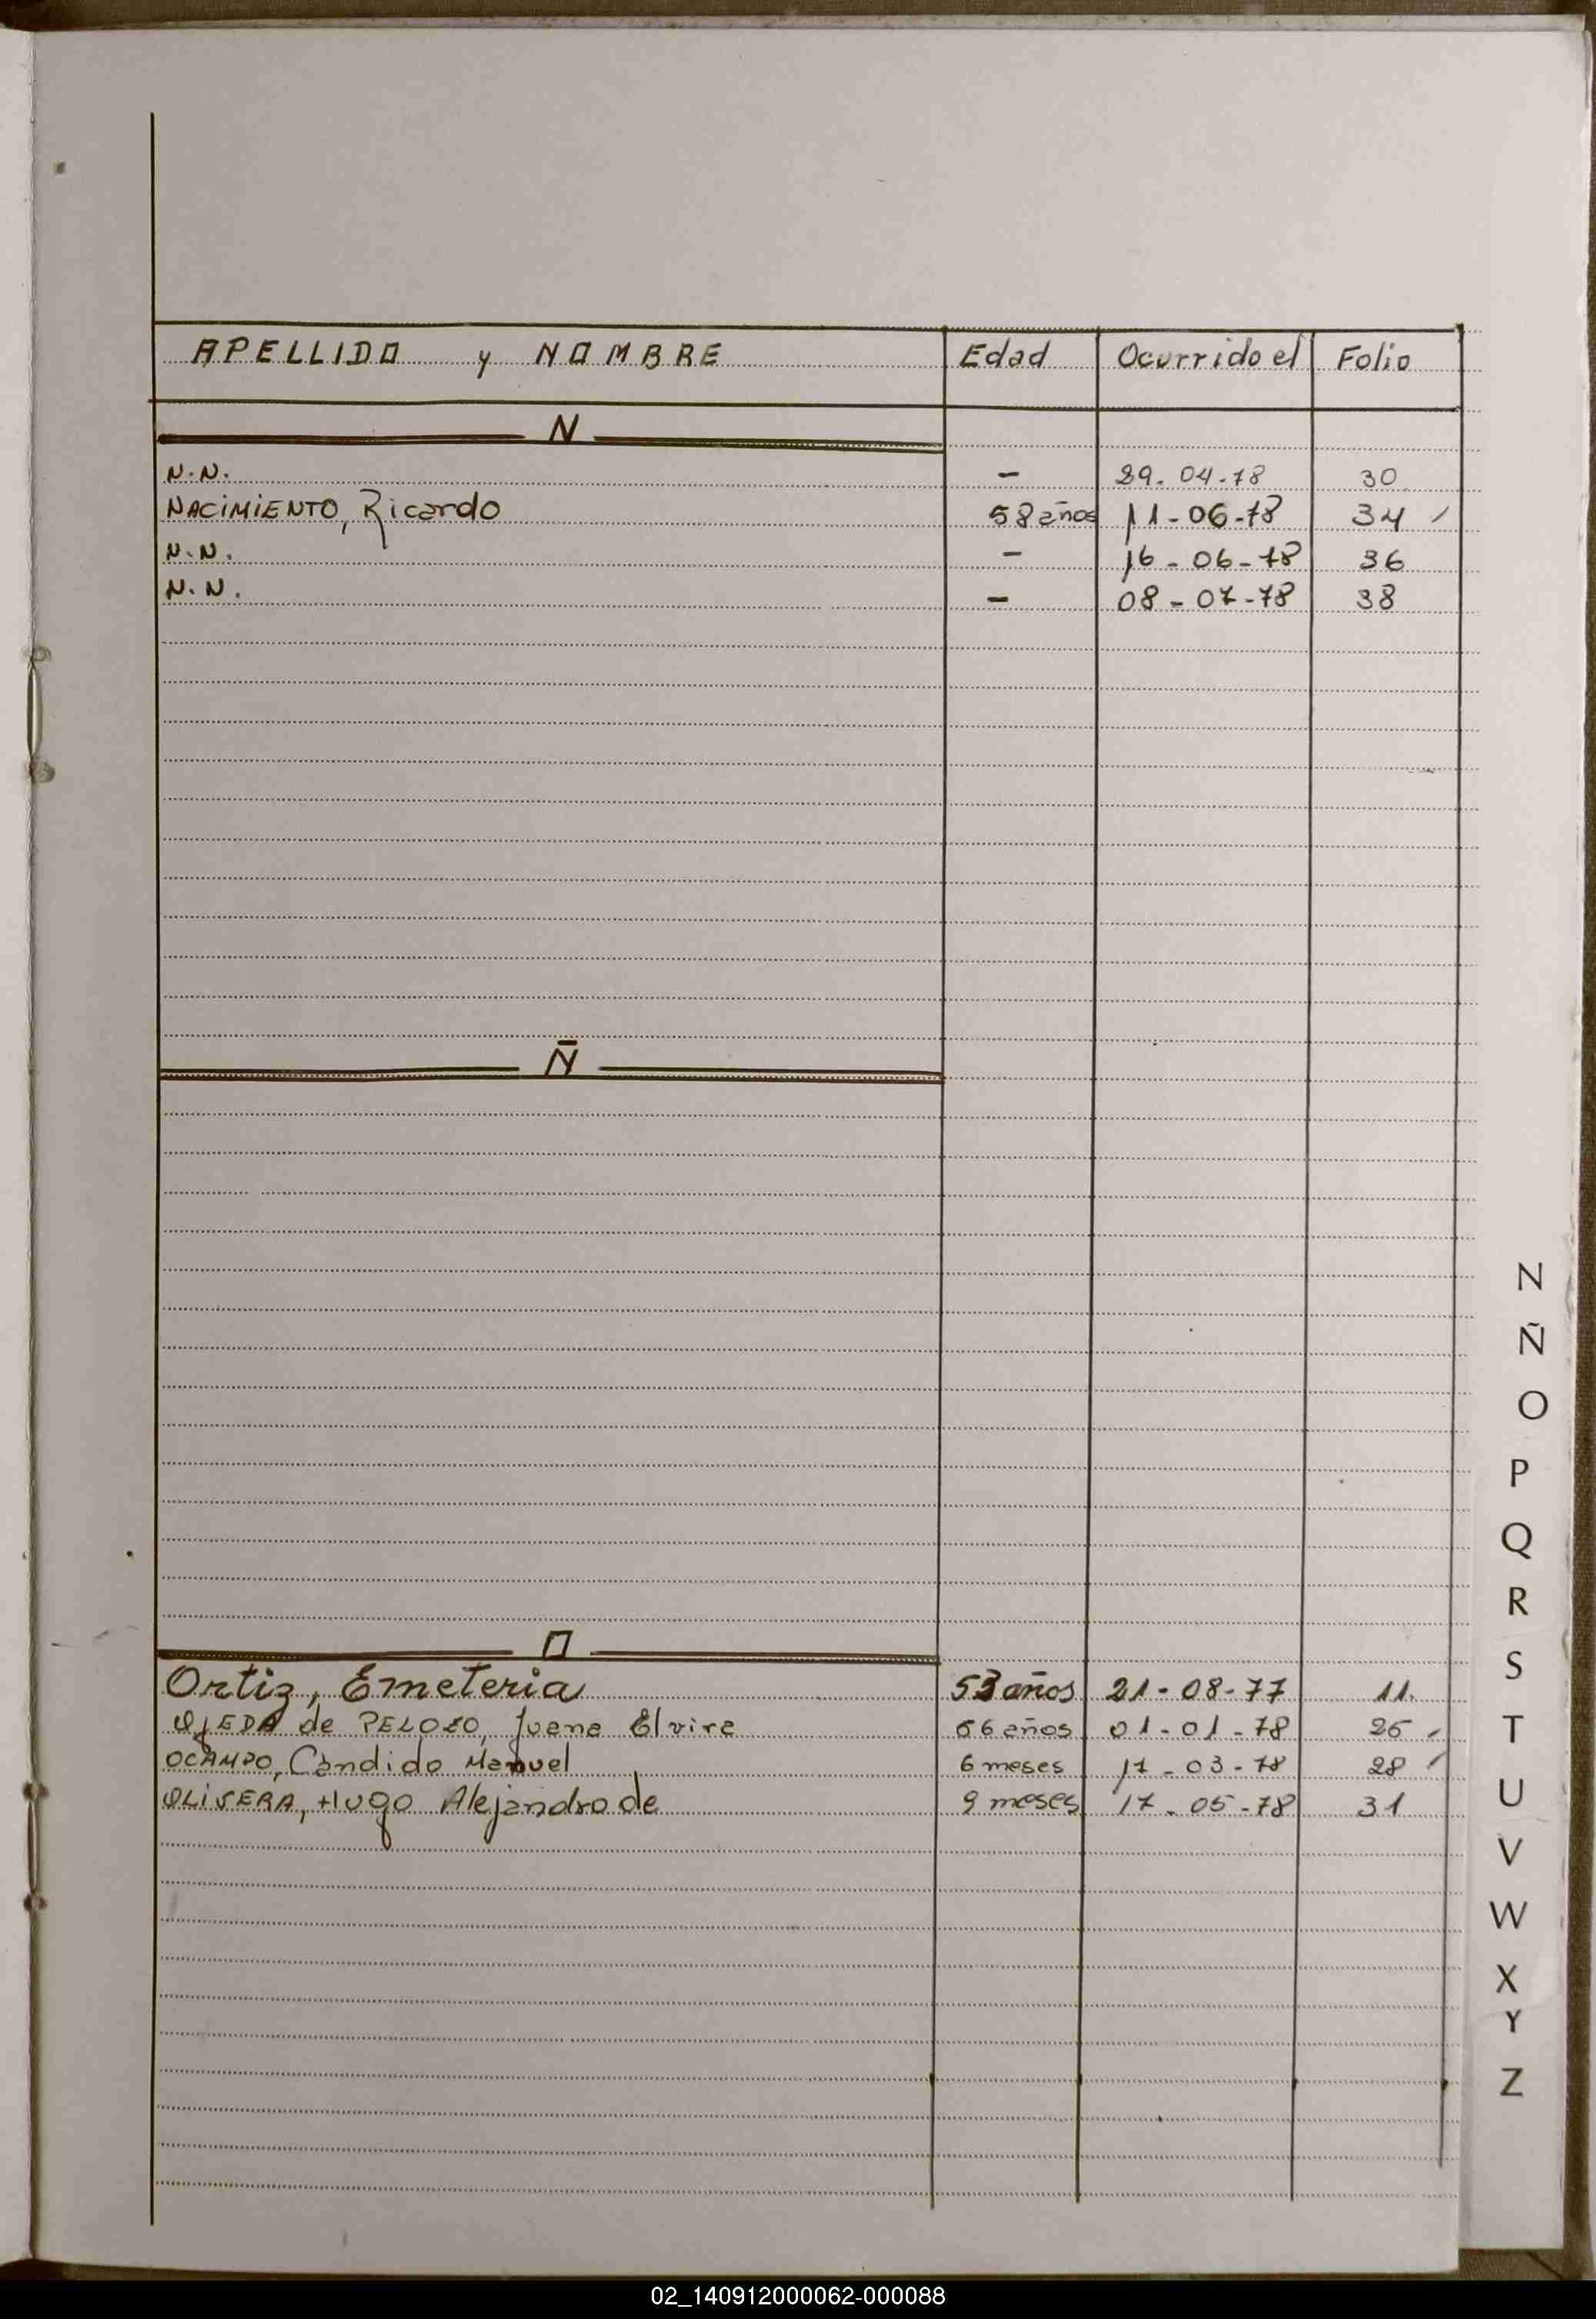 APELLIDO y NOMBRE Edad Ocurrido el Folio
N
N.N. - 29-04-78 30
NACIMIENTO, Ricardo 58 años 11-06-78 34
N.N. - 16-06-78 36
N.N. - 08-07-78 38
Ñ
O
Ortiz, Emeteria 53 años 21-08-77 11.
OJEDA de PELOZO, Juana Elvira 66 años 01-01-78 26
OCAMPO, Cándido Manuel 6 meses 17-03-78 28
OLIVERA, Hugo Alejandro de 9 meses 17-05-78 31
N
Ñ
O
P
Q
R
S
T
U
V
W
X
Y
Z
02_140912000062-000088